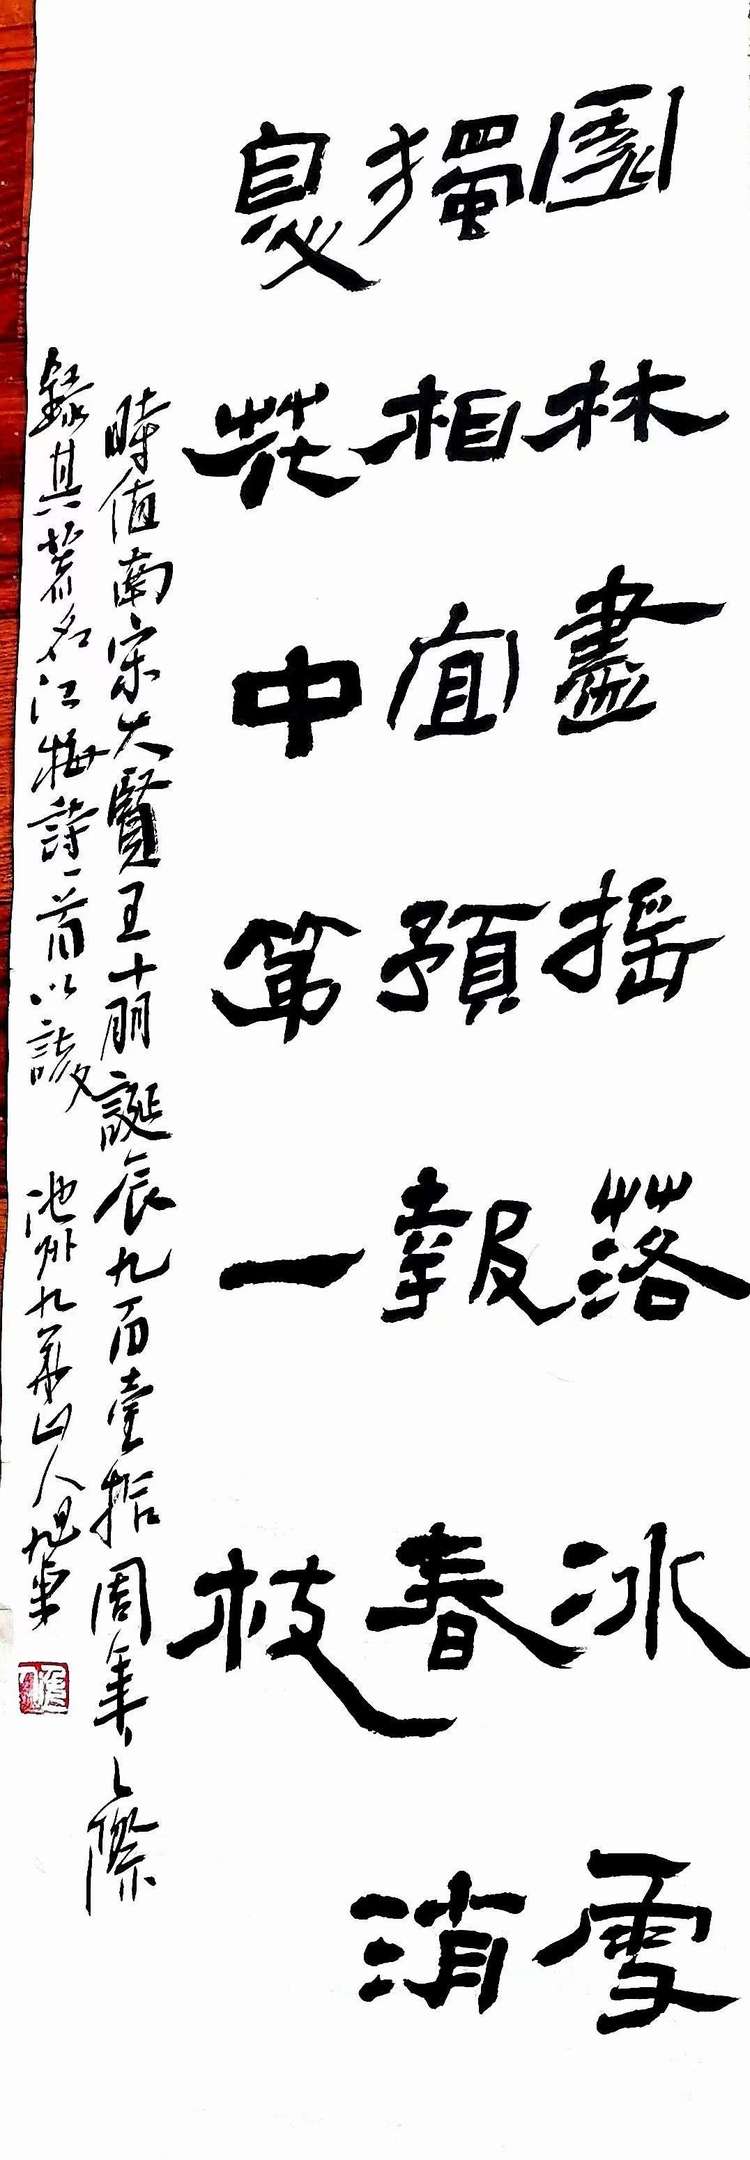 園林盡搖落冰雪
獨相宜預報春消
息花中第一枝
時值南宋大賢王十朋誕辰九百壹拾周年之際
錄其著名江梅詩一首以 池州九華山人旭